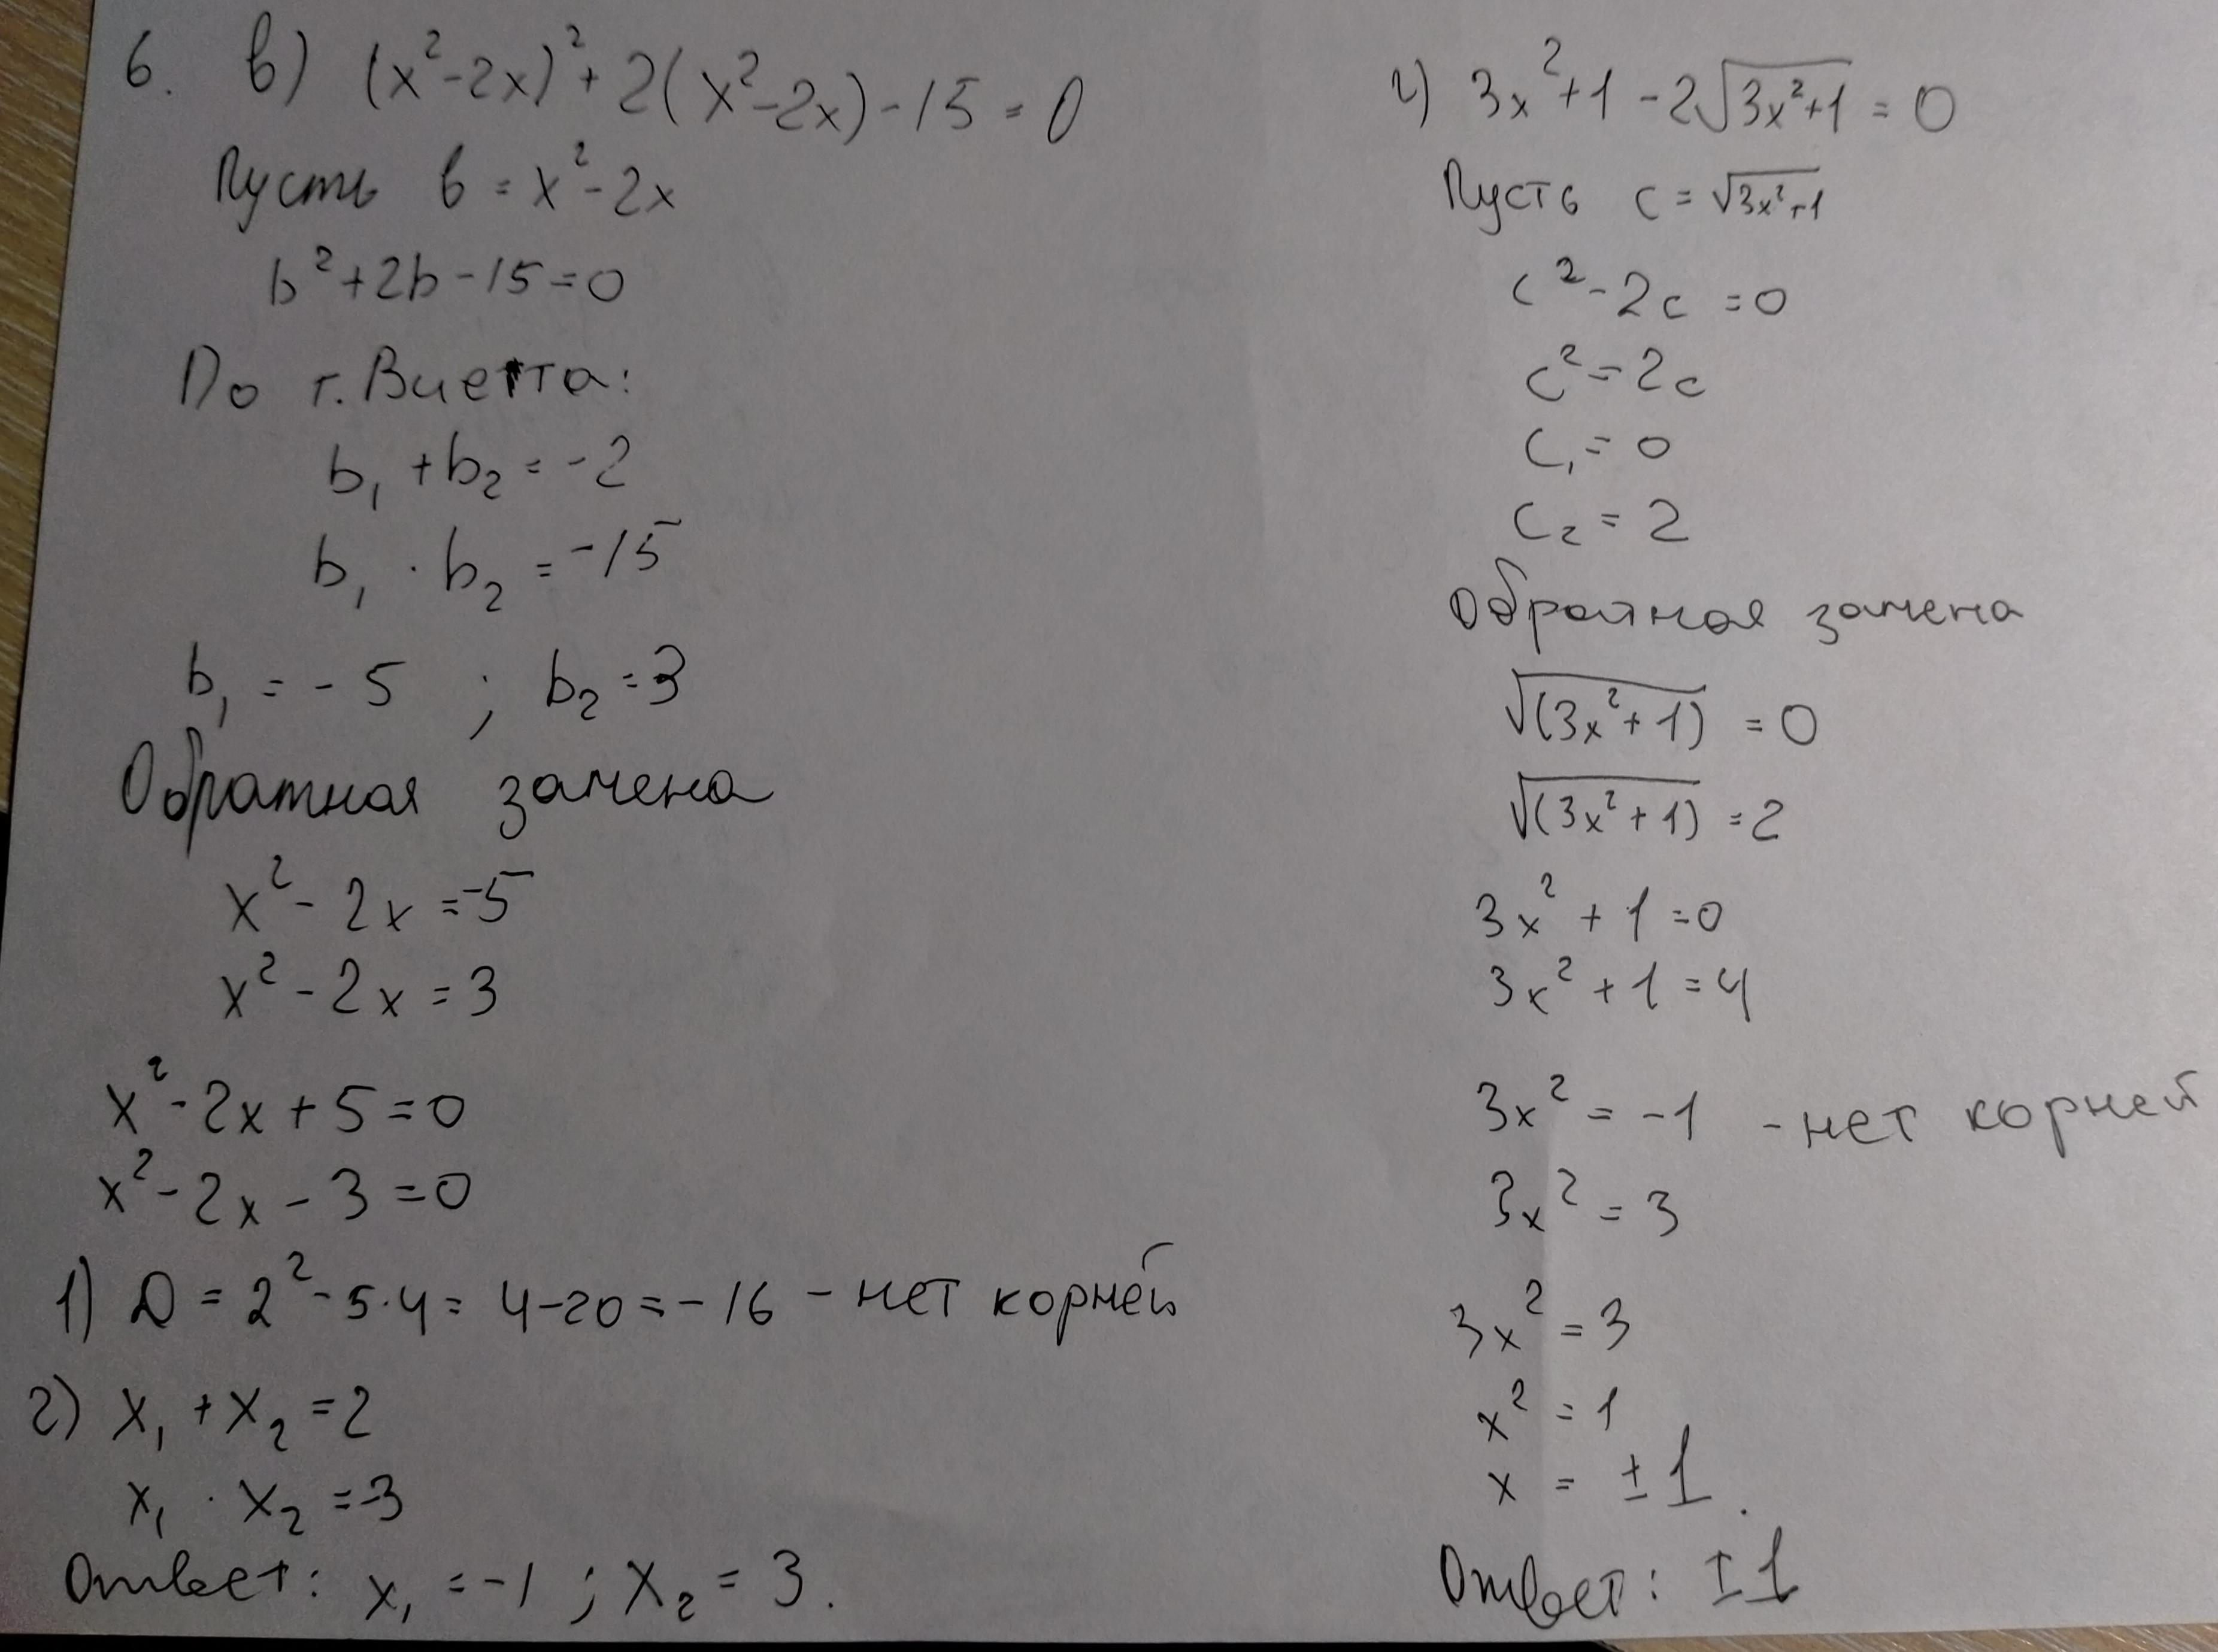 6. в) (x²-2x)²+2(x²-2x)-15=0
Пусть b=x²-2x
b²+2b-15=0
По т. Виетта:
b₁+b₂=-2
b₁·b₂=-15
b₁=-5 ; b₂=3
Обратная замена
x²-2x=-5
x²-2x=3
x²-2x+5=0
x²-2x-3=0
1) D=2²-5·4=4-20=-16 - нет корней
2) x₁+x₂=2
x₁·x₂=-3
Ответ: x₁=-1 ; x₂=3.
г) 3x²+1-2√(3x²+1)=0
Пусть c=√(3x²+1)
c²-2c=0
c²=2c
c₁=0
c₂=2
Обратная замена
√(3x²+1)=0
√(3x²+1)=2
3x²+1=0
3x²+1=4
3x²=-1 - нет корней
3x²=3
3x²=3
x²=1
x=±1.
Ответ: ±1